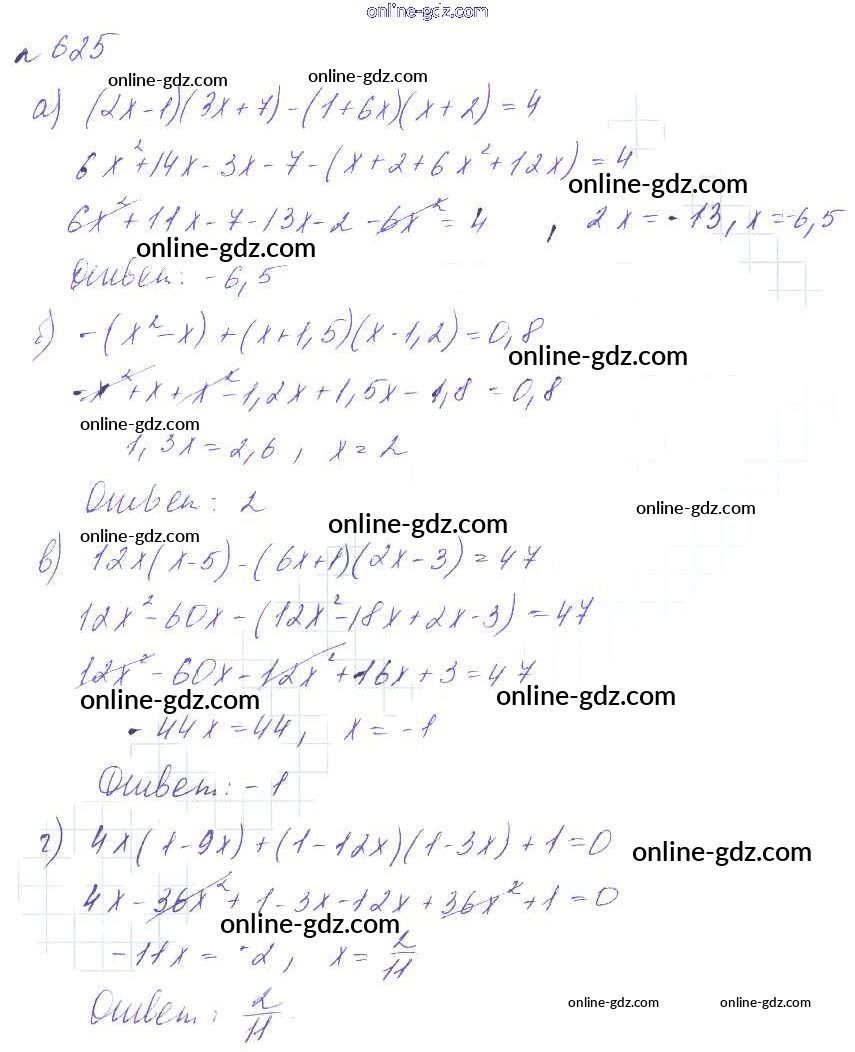 online-gdz.com
№ 625
online-gdz.com online-gdz.com
а) (2x-1)(3x+7)-(1+6x)(x+2)=4
6x²+14x-3x-7-(x+2+6x²+12x)=4
online-gdz.com
6x²+11x-7-13x-2-6x²=4 , 2x=-13, x=-6,5
online-gdz.com
Ответ: -6,5
б) -(x²-x)+(x+1,5)(x-1,2)=0,8
online-gdz.com
-x²+x+x²-1,2x+1,5x-1,8=0,8
online-gdz.com
1,3x=2,6, x=2
Ответ: 2
online-gdz.com
online-gdz.com
online-gdz.com
в) 12x(x-5)-(6x+1)(2x-3)=47
12x²-60x-(12x²-18x+2x-3)=47
12x²-60x-12x²+16x+3=47
online-gdz.com online-gdz.com
-44x=44, x=-1
Ответ: -1
г) 4x(1-9x)+(1-12x)(1-3x)+1=0
online-gdz.com
4x-36x²+1-3x-12x+36x²+1=0
online-gdz.com
-11x=-2, x=2/11
Ответ: 2/11.
online-gdz.com online-gdz.com